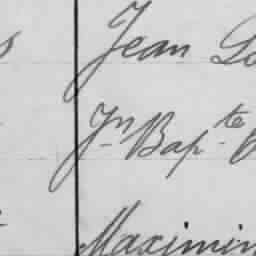 Jean
Jn Bapte
Maximin